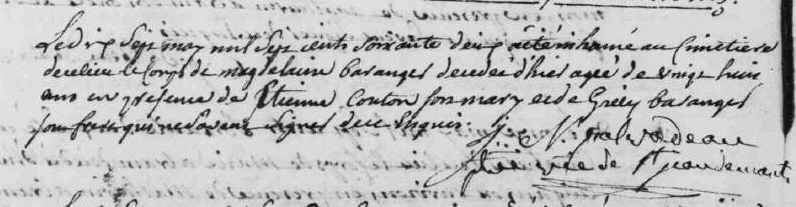 Le dix Sept may mil Sept cents soixante deux a été inhumé au Cimetiere
de ce lieu le Corps de magdelaine baranger decedée d'hier agée de vingt huit
ans en présence de Etienne Couton son mary et de baranger
son frere qui ne savent signer de ce enquis.
J. N.
de St jean de